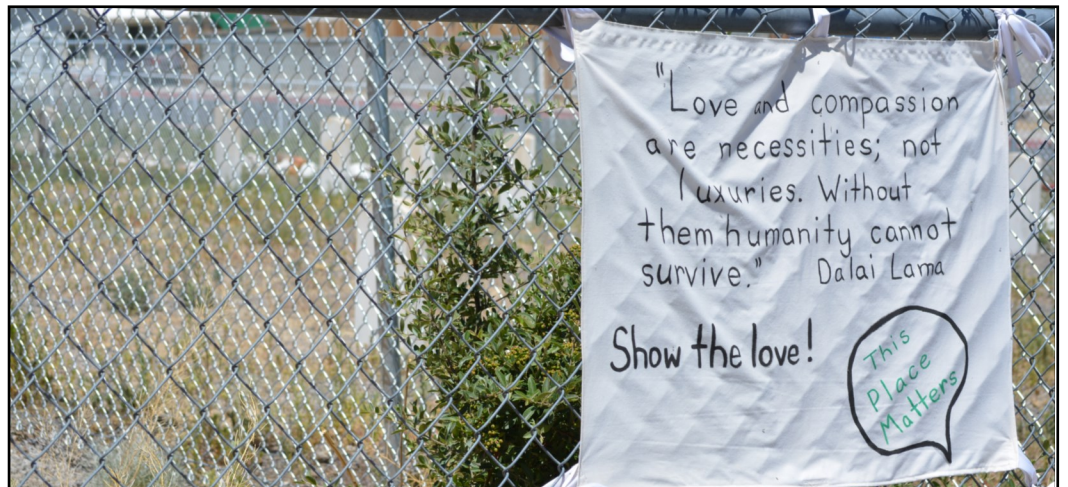 "Love and compassion
are necessities; not
luxuries. Without
them humanity cannot
survive." Dalai Lama
Show the love!
This
Place
Matters